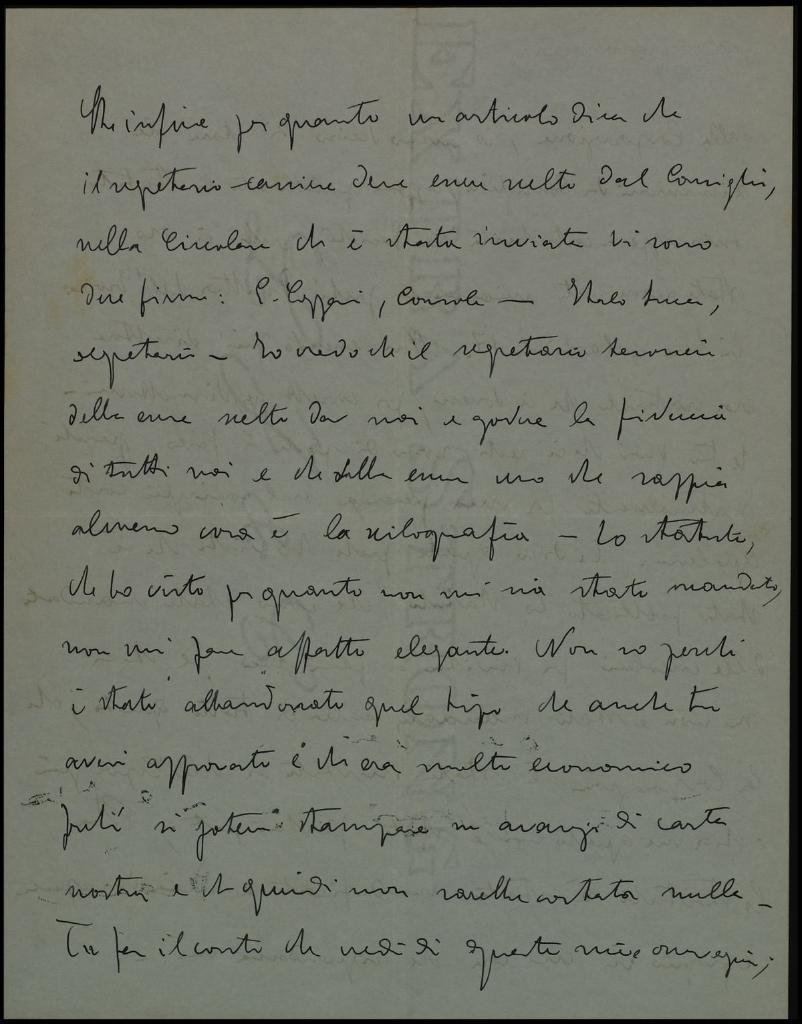 Che infine per quanto un articolo dica che
il segretario-cassiere deve essere scelto dal Consiglio,
nella Circolare che è stata inviata vi sono
due firme: E. Cozzani, Console — Italo
segretario – Io credo che il segretario tesoriere
debba essere scelto da noi e godere la fiducia
di tutti noi e che debba essere uno che sappia
almeno cosa è la xilografia – Lo statuto,
che ho visto per quanto non mi sia stato mandato,
non mi pare affatto elegante. Non so perchè
è stato abbandonato quel tipo che anche tu
avevi approvato e che era molto economico
perchè si poteva stampare su avanzi di carta
nostra e che quindi non sarebbe costata nulla –
Tu fai il conto che credi di queste mie osservazioni;